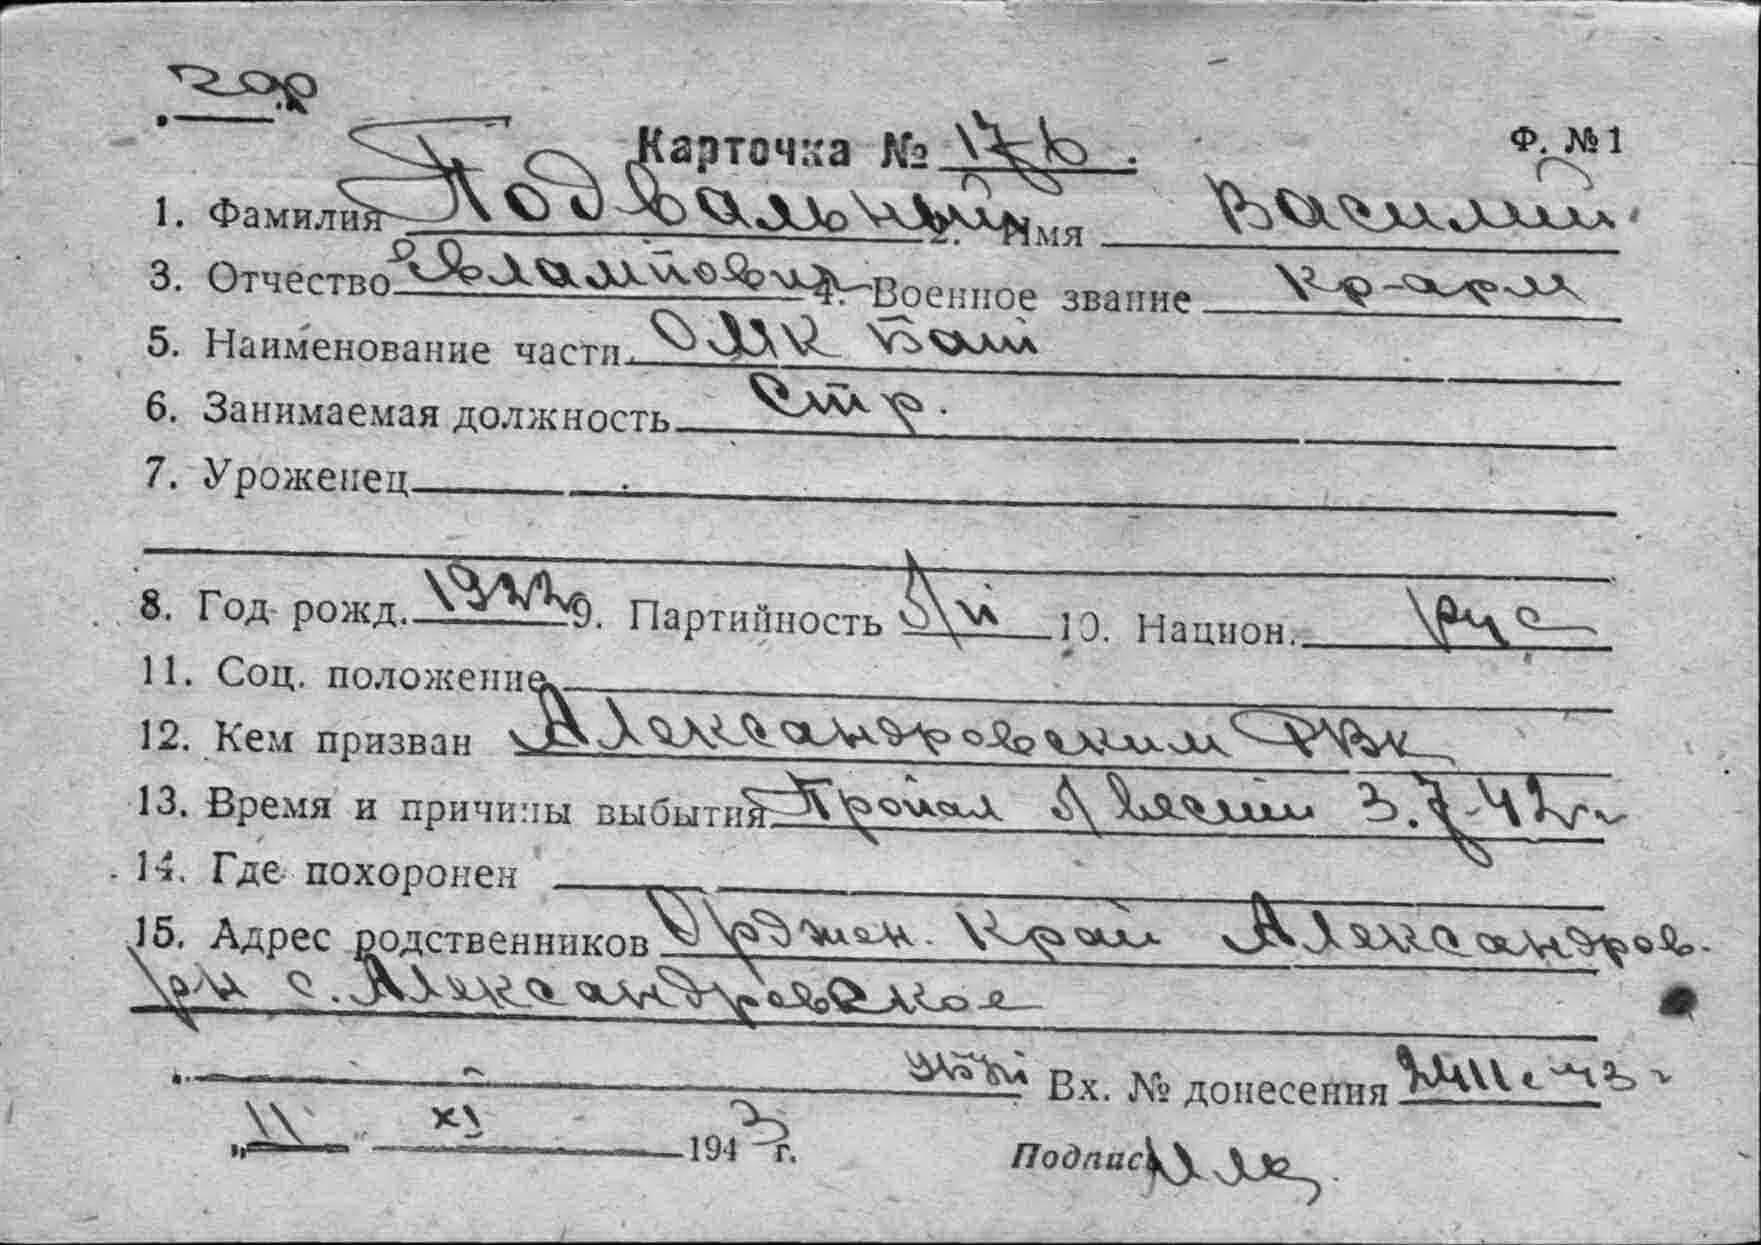 Карточка № 176. Ф. №1
1. Фамилия Подвальный 2. Имя Василий
3. Отчество Евлампович 4. Военное звание кр-арм
5. Наименование части ОМК Бат
6. Занимаемая должность Стр.
7. Уроженец
8. Год рожд. 1922 9. Партийность б/п 10. Национ. рус
11. Соц. положение
12. Кем призван Александровским РВК
13. Время и причины выбытия Пропал б/вести 3.7-42г
14. Где похоронен
15. Адрес родственников Орджен. Край Александров.
рн с. Александровское
Вх. № донесения
„11" XI 1943 г. Подпись